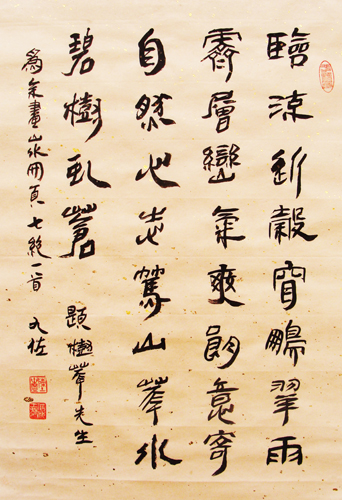 臨涼穀翠雨
霽層巒氣爽朗意寄
自然心志篤山峯水
碧樹蒼 題樹峯先生
為余畫山水冊頁七絕一首 佐